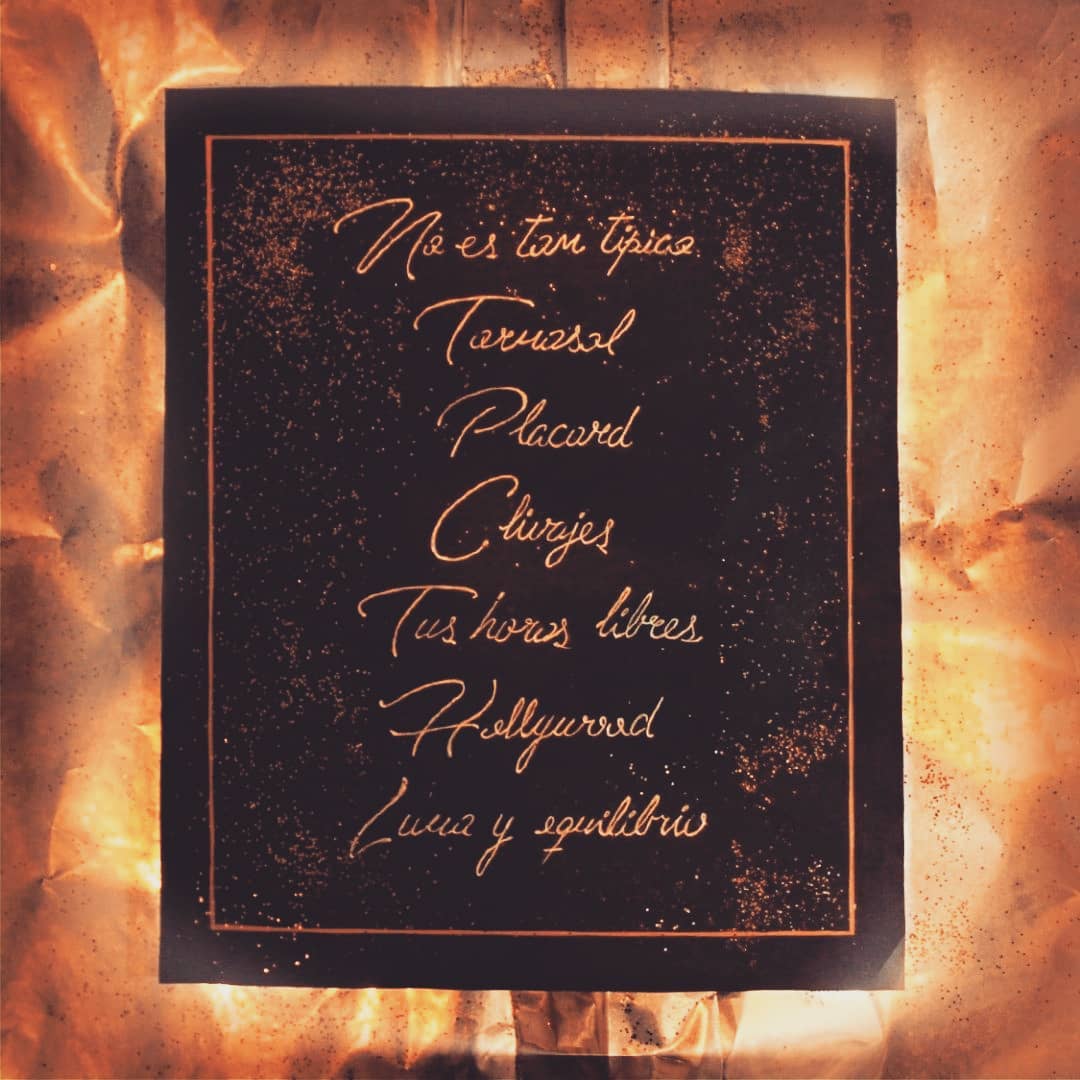 No es tan típico
Tornasol
Placard
Clivajes
Tus horas libres
Hollywood
Luna y equilibrio